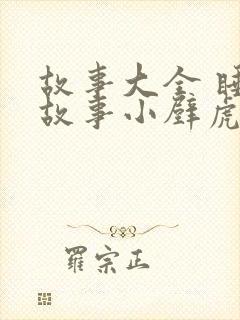 故事大全 睡
故事小壁虎
羅宗正